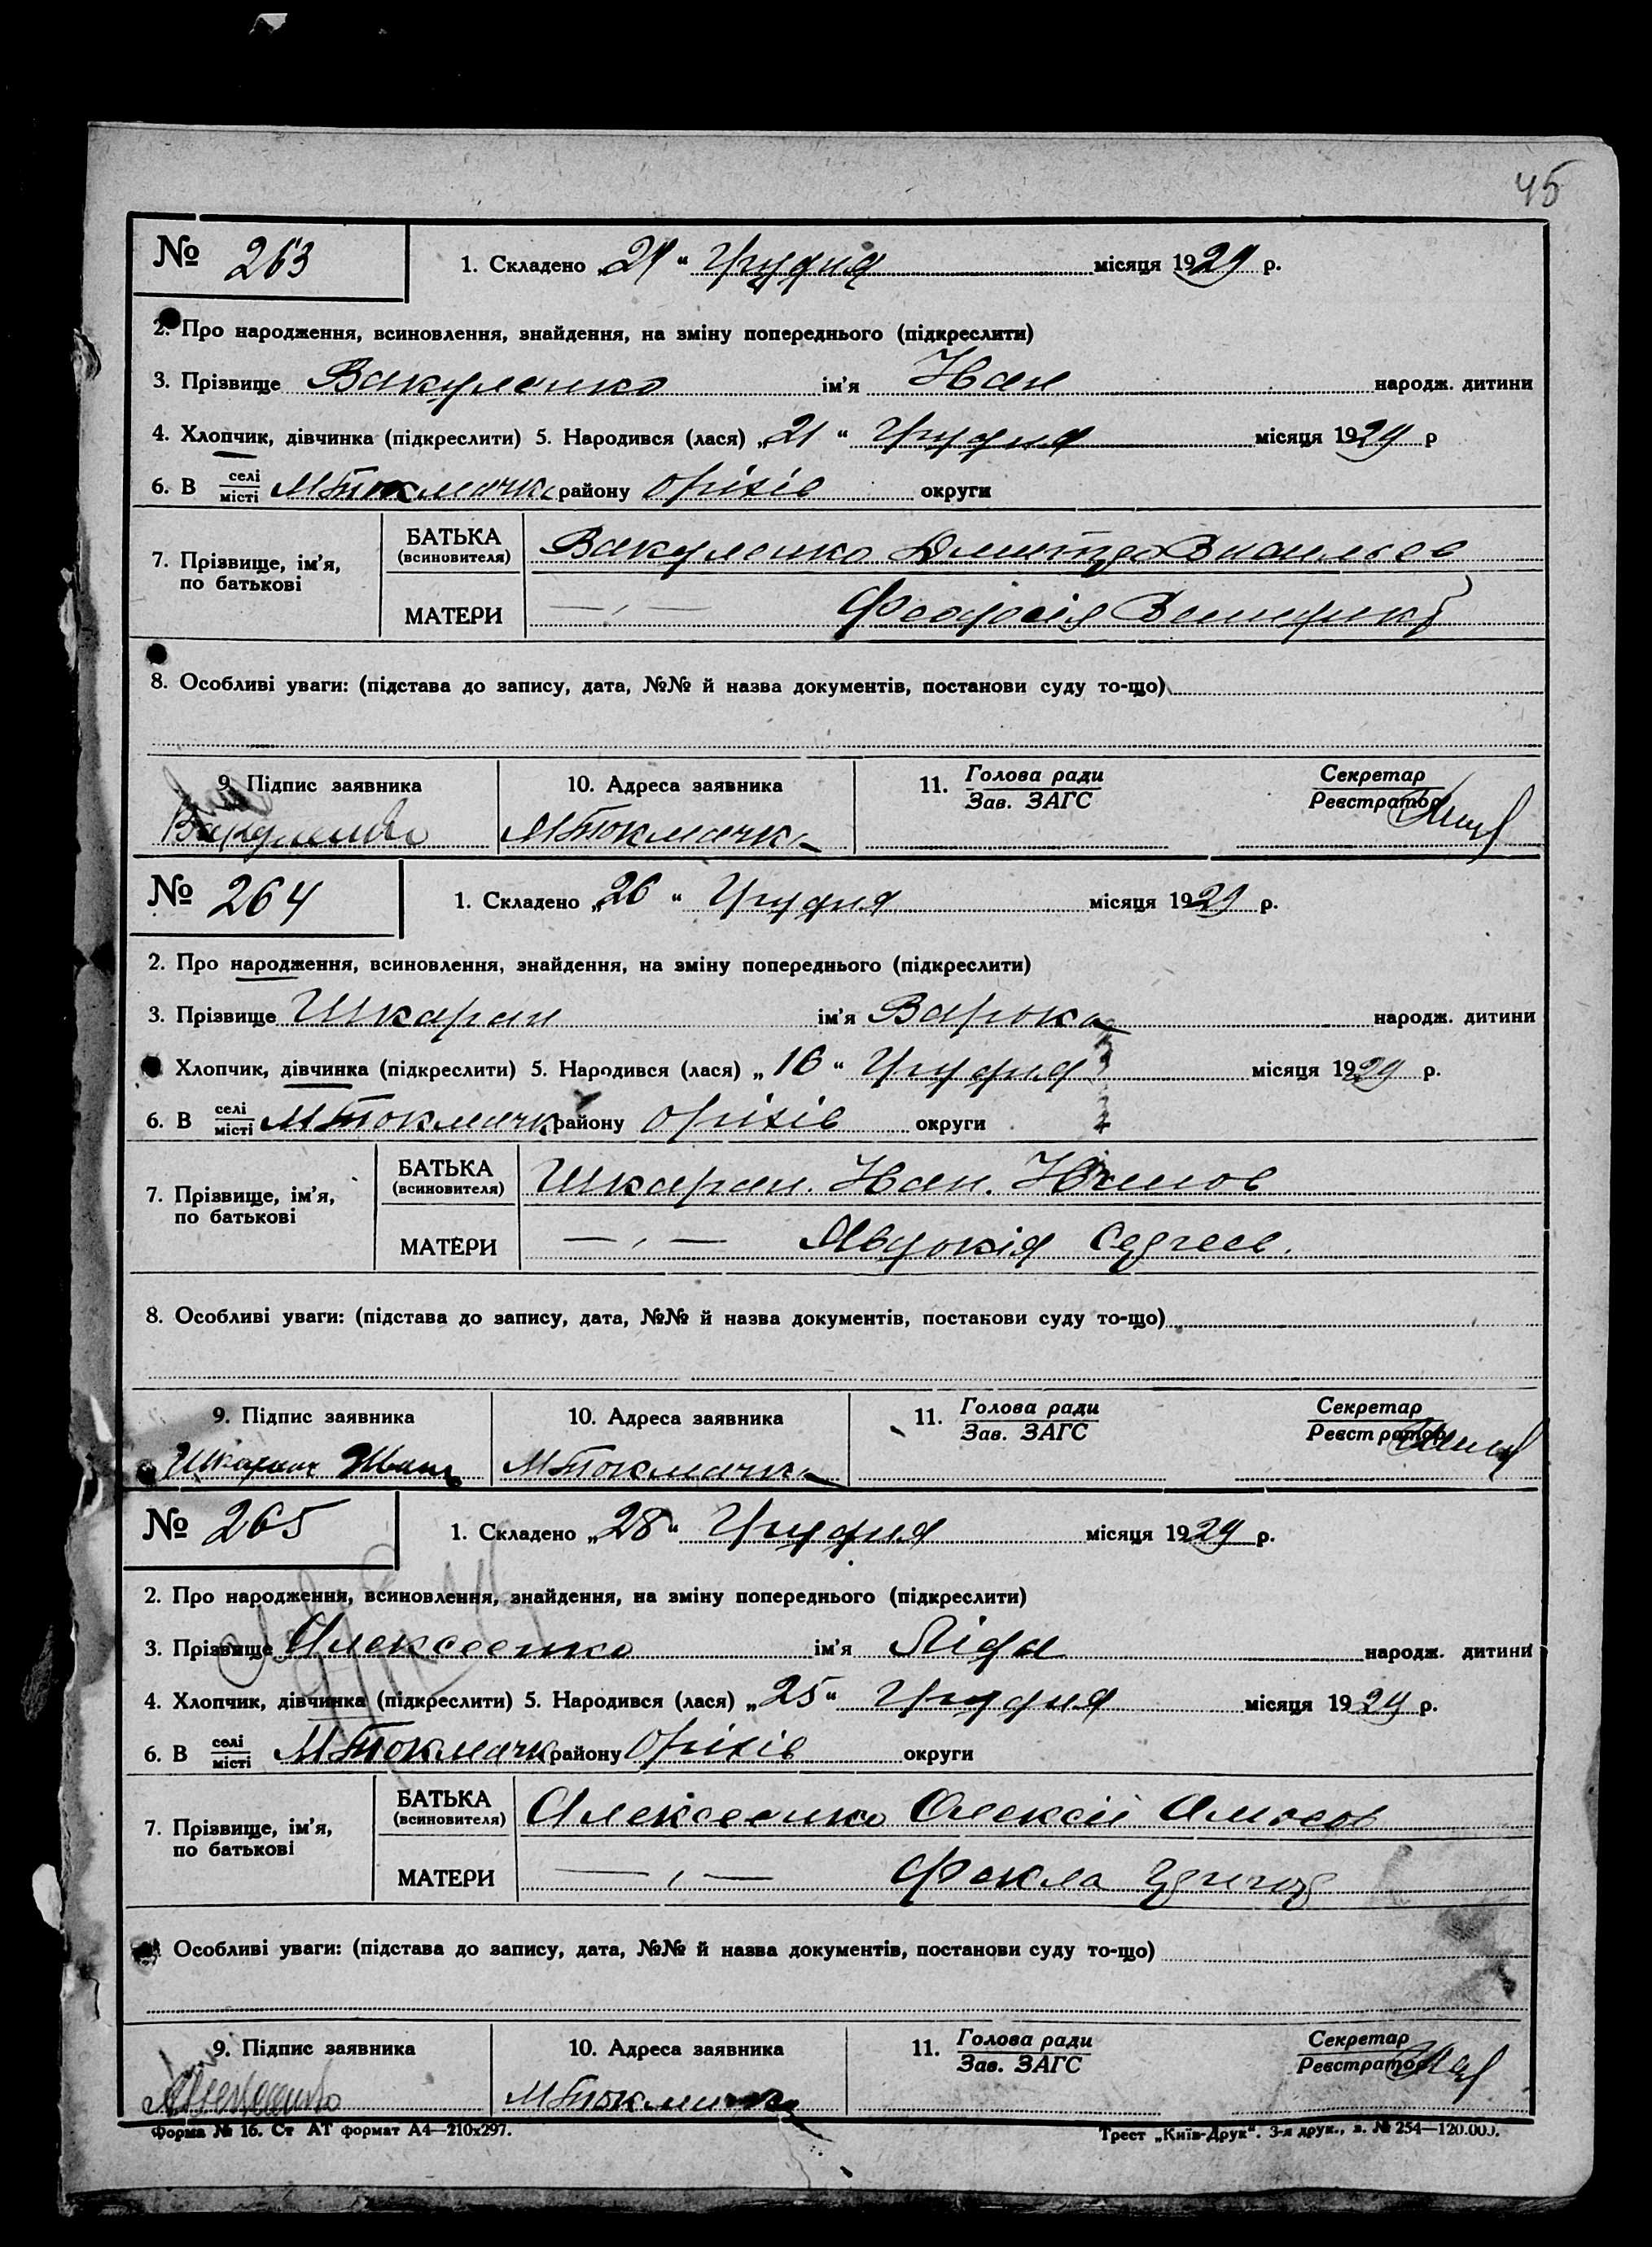 45
№ 263
1. Складено „21“ Грудня місяця 1929 р.
2. Про народження, всиновлення, знайдення, на зміну попереднього (підкреслити)
3. Прізвище Вакуленко ім'я Иван народж. дитини
4. Хлопчик, дівчинка (підкреслити) 5. Народився (лася) „21“ Грудня місяця 1929 р
6. В селі/місті МТокмачка району Оріхів округи
7. Прізвище, ім'я, по батькові
БАТЬКА (всиновителя) Вакуленко Дмитро
МАТЕРИ —„— Феодосія
8. Особливі уваги: (підстава до запису, дата, №№ й назва документів, постанови суду то-що)
9. Підпис заявника 10. Адреса заявника 11. Голова ради/Зав. ЗАГС Секретар/Реєстратор
Вакуленко МТокмачка
№ 264
1. Складено „26“ Грудня місяця 1929 р.
2. Про народження, всиновлення, знайдення, на зміну попереднього (підкреслити)
3. Прізвище Шкаран ім'я Варюка народж. дитини
Хлопчик, дівчинка (підкреслити) 5. Народився (лася) „16“ Грудня місяця 1929 р.
6. В селі/місті МТокмачк району Оріхів округи
7. Прізвище, ім'я, по батькові
БАТЬКА (всиновителя) Шкаран. Иван.
МАТЕРИ —„— Явдокія Сергеев.
8. Особливі уваги: (підстава до запису, дата, №№ й назва документів, постанови суду то-що)
9. Підпис заявника 10. Адреса заявника 11. Голова ради/Зав. ЗАГС Секретар/Реєстратор
Шкаран Иван МТокмачка
№ 265
1. Складено „28“ Грудня місяця 1929 р.
2. Про народження, всиновлення, знайдення, на зміну попереднього (підкреслити)
3. Прізвище Алексеенко ім'я Ліда народж. дитини
4. Хлопчик, дівчинка (підкреслити) 5. Народився (лася) „25“ Грудня місяця 1929 р.
6. В селі/місті МТокмачк району Оріхів округи
7. Прізвище, ім'я, по батькові
БАТЬКА (всиновителя) Алексеенко Олексій Амосов
МАТЕРИ —„— Фекла
Особливі уваги: (підстава до запису, дата, №№ й назва документів, постанови суду то-що)
9. Підпис заявника 10. Адреса заявника 11. Голова ради/Зав. ЗАГС Секретар/Реєстратор
МТокмачка
Форма № 16. Ст АТ формат А4—210x297. Трест „Київ-Друк“. 3-я друк., з. № 254—120.000.